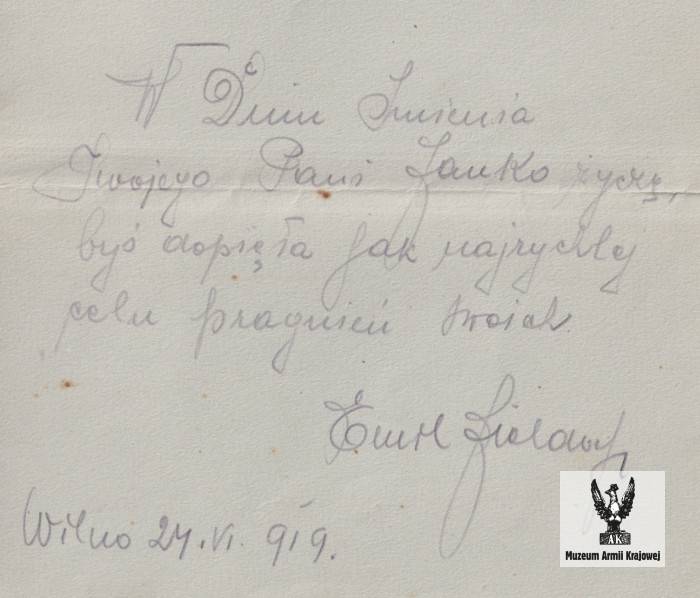 W Dniu Imienia
Twojego Pani Janko życzę,
byś dopięła jak najrychlej
celu pragnień twoich
Emil Fieldorf
Wilno 24.VI. 919.
AK
Muzeum Armii Krajowej